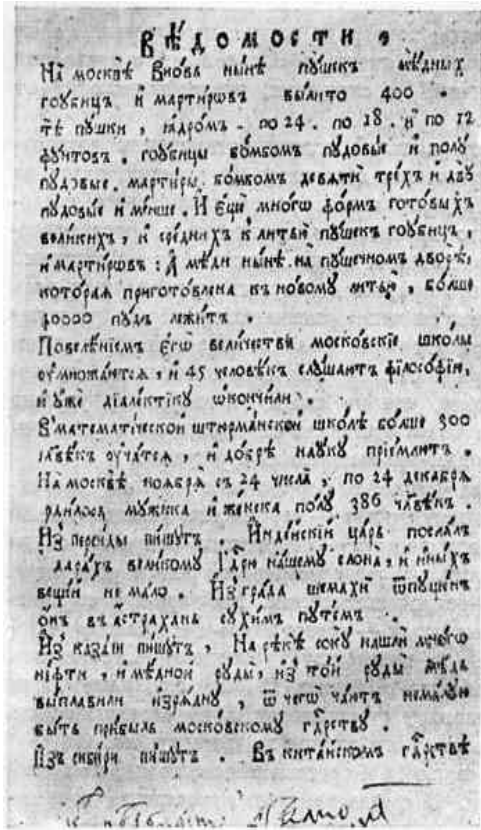 ВѢ́ДОМОСТИ
На москвѣ̀ вно́вь ны́нѣ пу́шекъ мѣ́дныхъ
гоубицъ и҆ мартировъ вы́лито 400 .
тѣ̀ пу́шки , ꙗ҆дромъ . по 24 . по 18 . и҆ по 12
фу́нтовъ . гоубицы бо́мбомъ пудовы́е и҆ полу
пудовые . мартиры бо́мбомъ девятѝ тре́хъ и҆ двꙋ
пудовые и҆ ме́нше . И҆ є҆щѐ мно́гѡ фо́рмъ гото́выхъ
великихъ , и҆ сре́днихъ к̾ литью̀ пу́шекъ гоубицъ ,
и҆ мартировъ : А҆ мѣди ны́нѣ на пу́шечномъ дворѣ̀ ,
кото́рая приготовлена къ но́вому литью̀ , бо́лше
40000 пу́дъ лежи́тъ .
Повелѣ́нїемъ є҆гѡ̀ вели́чества моско́вские шко́лы
оу҆множаются , и҆ 45 человѣ́къ слꙋ́шаютъ фїлосо́фїю ,
и҆ оу҆жѐ дїале́ктїку ѡ҆кончили .
В̾ математи́ческой штирма́нской шко́лѣ бо́лше 300
чл҃вѣ́къ оу҆ча́тся , и҆ до́брѣ наꙋку прїе́млютъ .
На москвѣ̀ ноября̀ съ 24 числа̀ , по 24 декабря̀
родилось мꙋ́жска и҆ же́нска полꙋ 386 чл҃вѣ́къ .
И҆з̾ перси́ды пи́шꙋтъ . И҆нде́йскїй ца́рь посла́лъ
в̾ дара́хъ вели́комꙋ Гд҃рю на́шемꙋ слона̀ , и҆ и҆ны́хъ
веще́й не ма́ло . И҆з̾ гра́да шемахѝ ѿпꙋщенъ
о҆нъ въ а҆́страхань сꙋхи́мъ пꙋте́мъ .
И҆з̾ каза́ни пи́шꙋтъ , На рѣкѣ̀ сокꙋ̀ нашлѝ мно́гѡ
не́фти , и҆ мѣ́дной рꙋды̀ , и҆з̾ то́й рꙋды̀ мѣ́дь
вы́плавили и҆зря́днꙋ , ѿ чегѡ̀ ча́ютъ нема́лую
бы́ть при́быль моско́вскомꙋ гд҃рствꙋ .
И҆зъ сиби́ри пи́шꙋтъ . Въ кита́йскомъ гд҃рствѣ